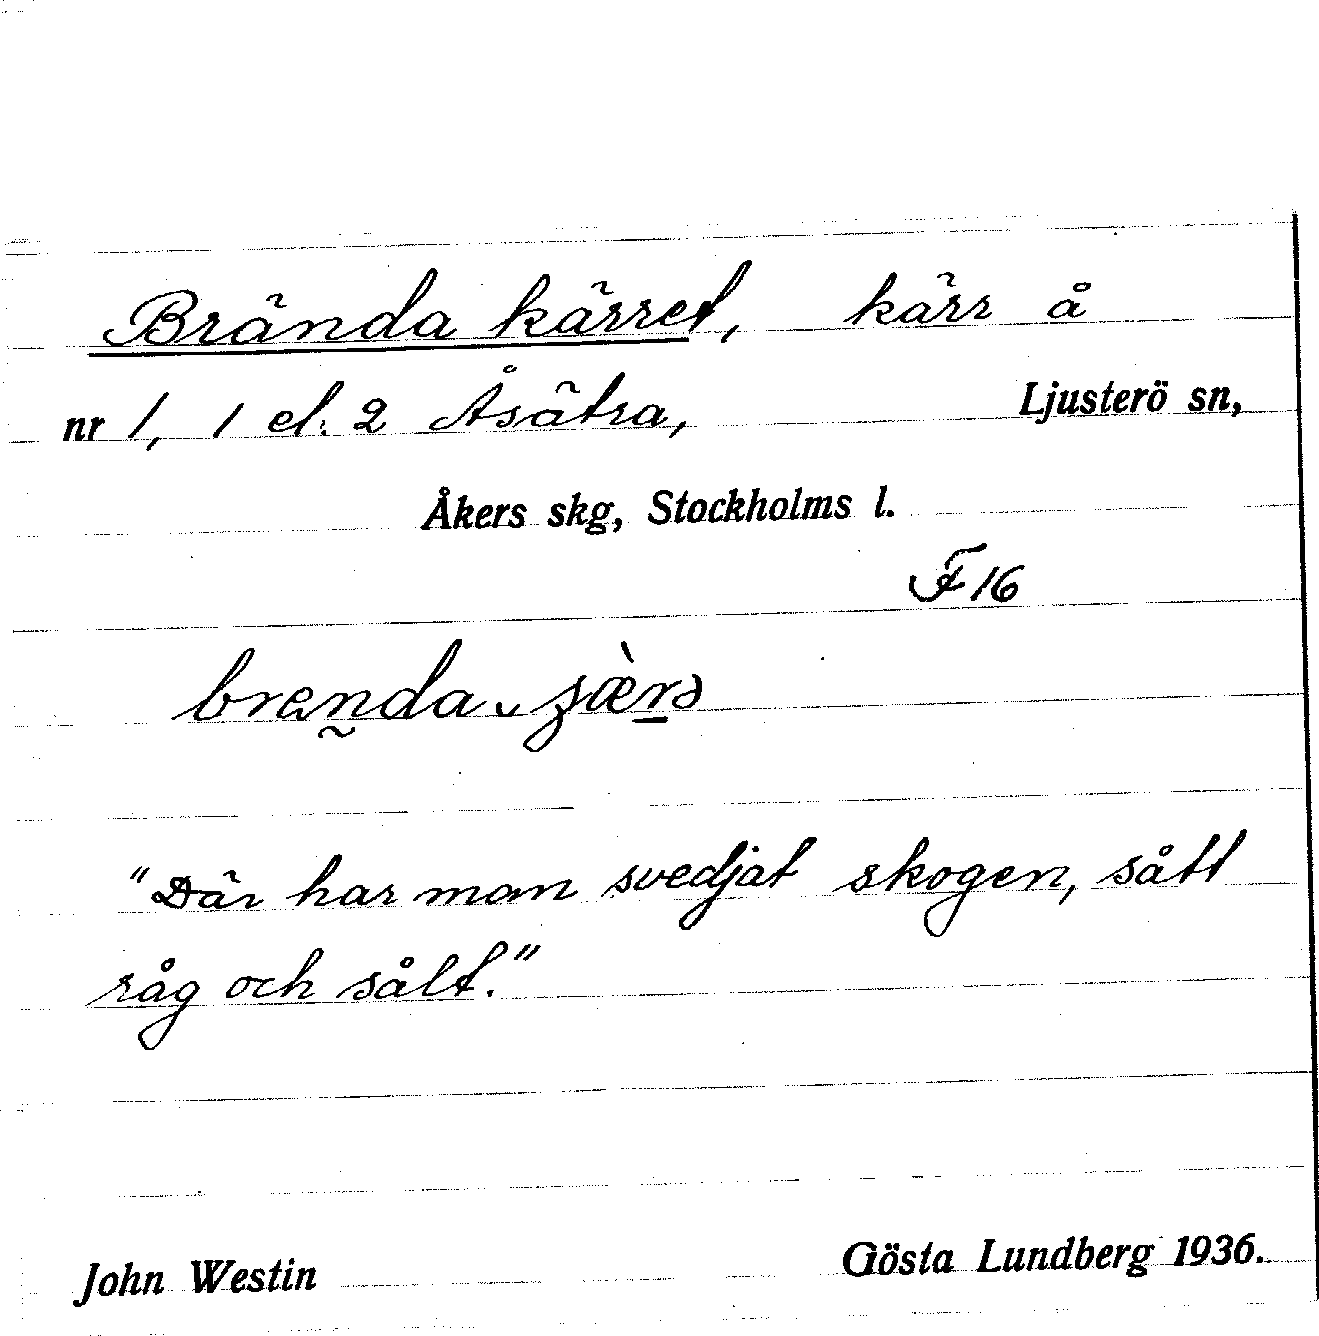 Brända kärret, kärr å
nr 1, 1 el. 2 Åsätra, Ljusterö sn,
Åkers skg, Stockholms l.
F 16
brenda
"Där har man svedjat skogen, sått
råg och sålt."
John Westin Gösta Lundberg 1936.